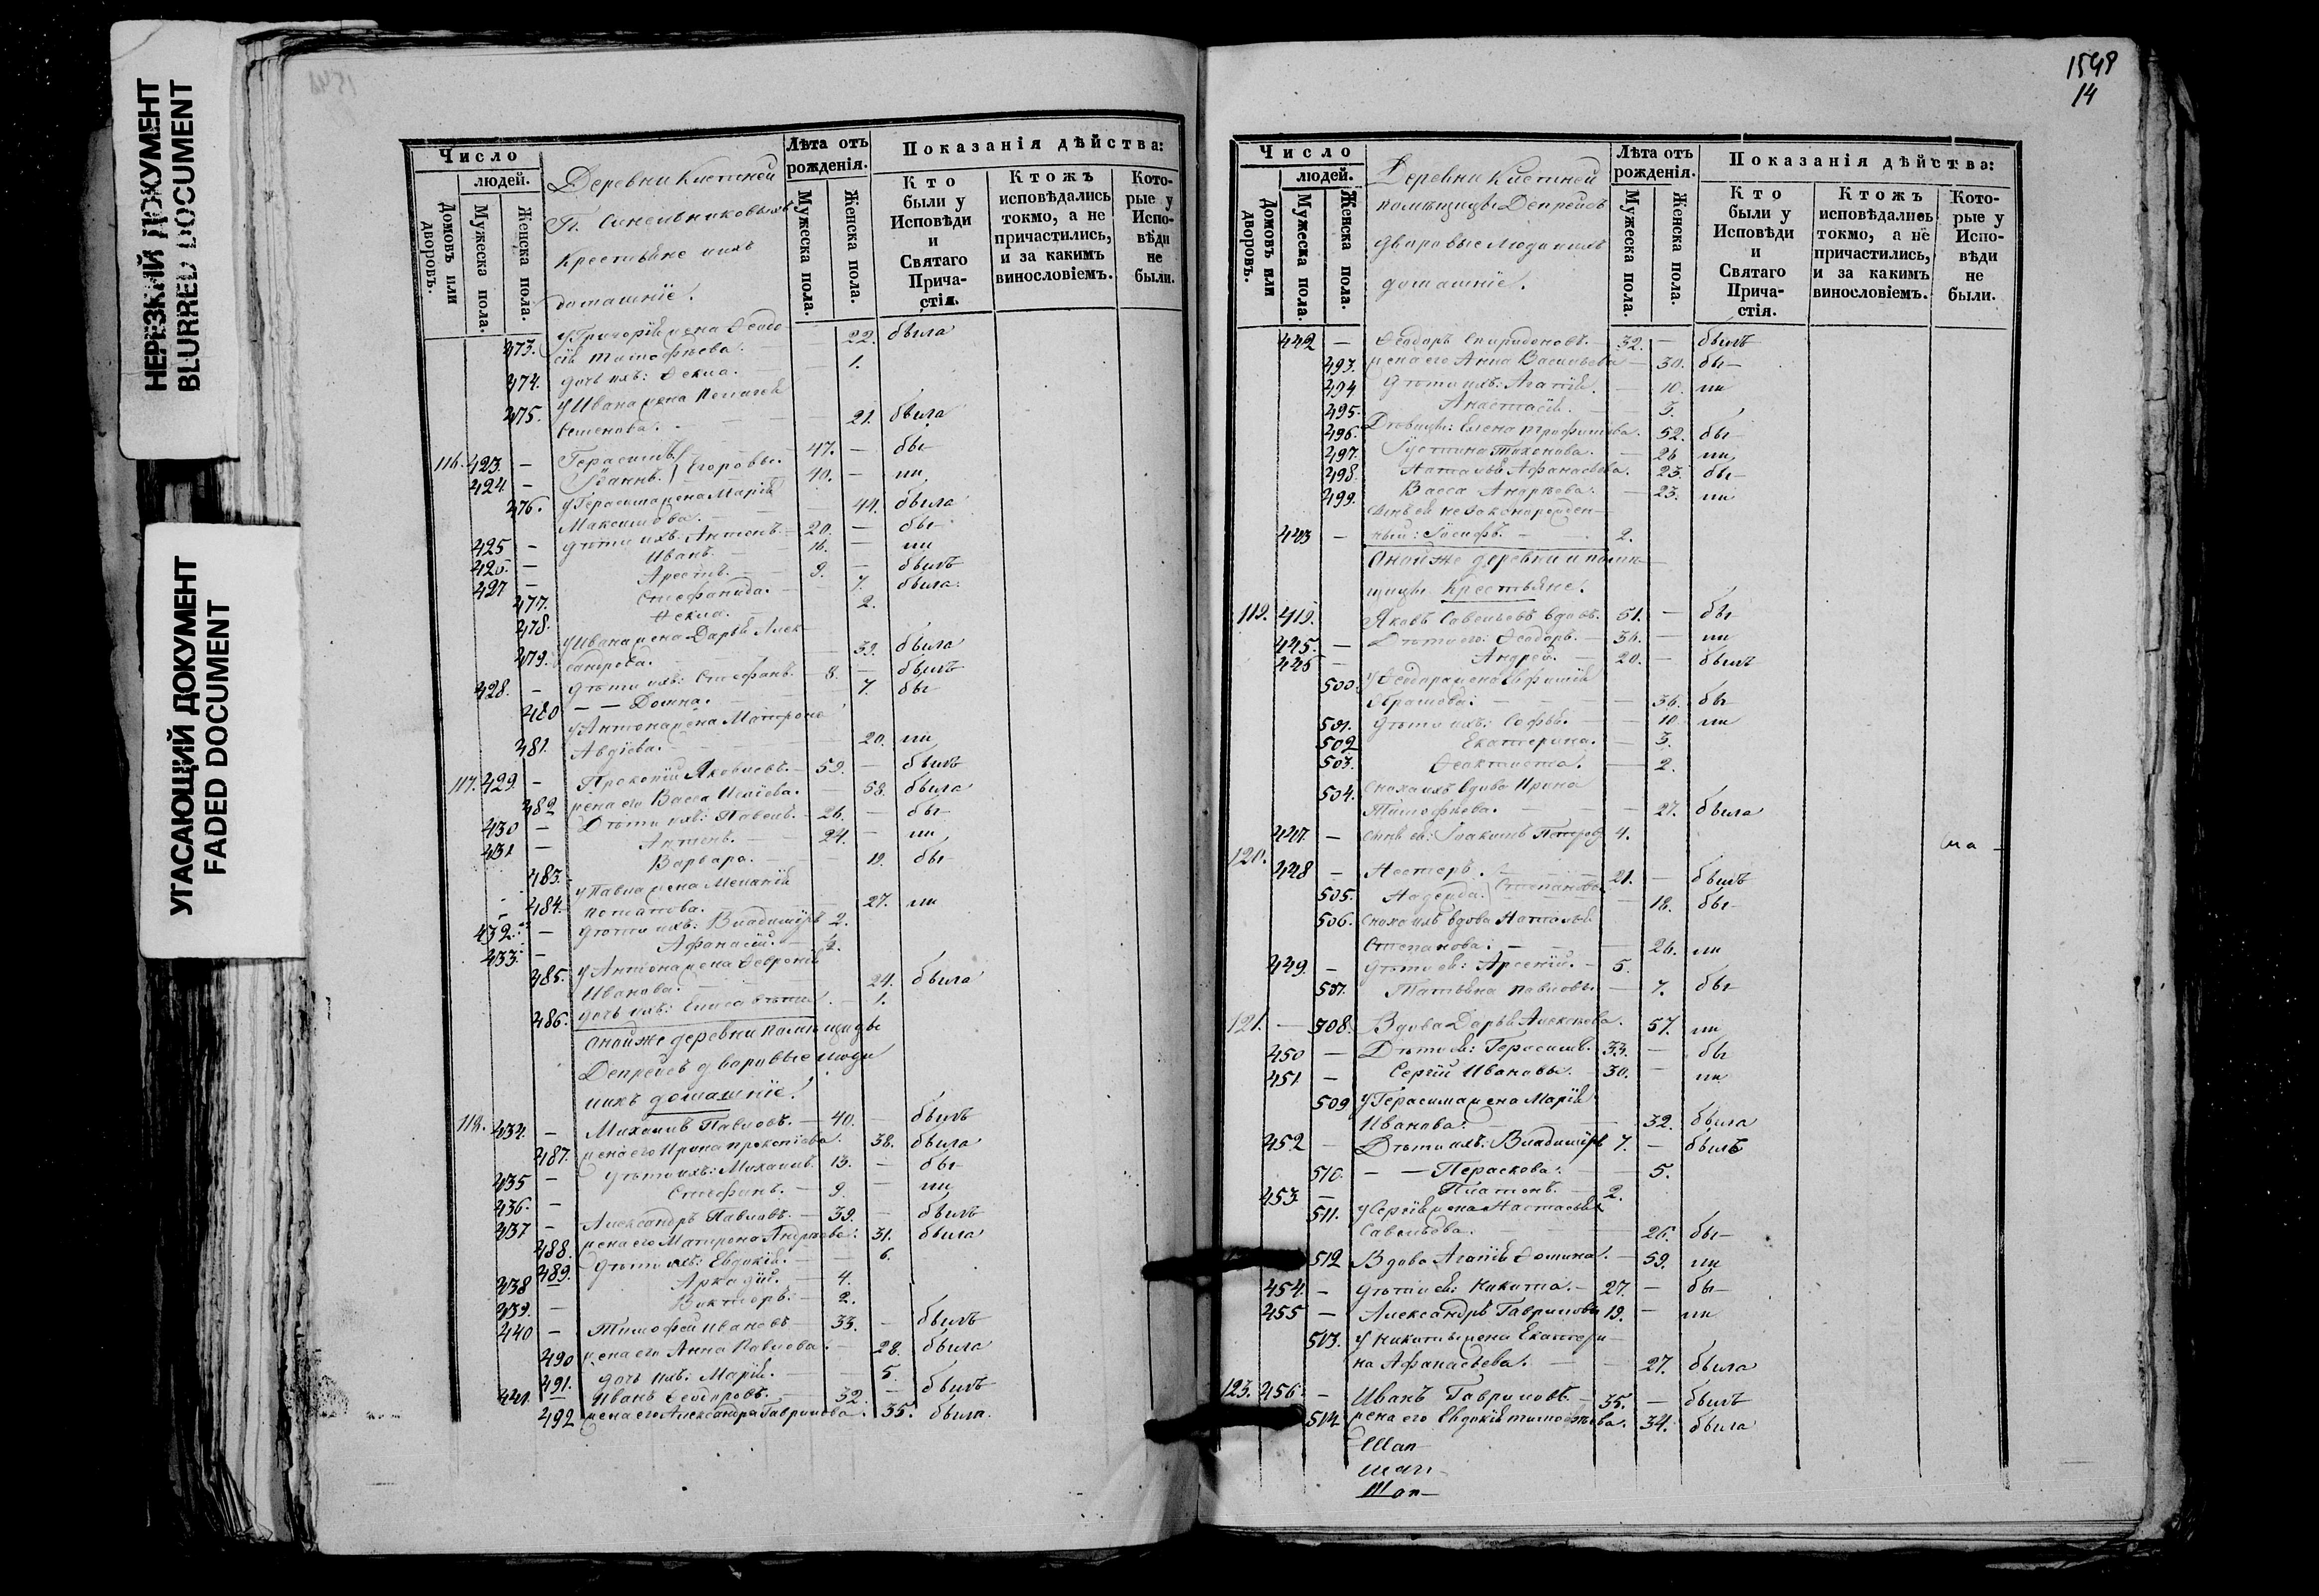 НЕРЕЗКИЙ ДОКУМЕНТ
BLURRED DOCUMENT
УГАСАЮЩИЙ ДОКУМЕНТ
FADED DOCUMENT
Число
людей.
Домовъ или дворовъ.
Мужеска пола.
Женска пола.
Деревни
П. Синельниковыхъ
Крестьяне ихъ
домашніе.
Лѣта отъ рожденія.
Мужеска пола.
Женска пола.
Показанія дѣйства:
Кто были у Исповѣди и Святаго Прича-стія.
Ктожъ исповѣдались токмо, а не причастились, и за какимъ винословіемъ.
Кото-рые у Испо-вѣди не были.
473. У Григорія жена Ѳеодо-
сія Тимофеева. 22. была
474. дочь ихъ: Ѳекла. 1.
475. У Ивана жена Пелагея
21. была
116. 423. – Герасимъ 47. – бы-
424. – Іоаннъ. } Егоровы. 40. – ли
476. У Герасима жена Марія
Максимова. 44. была
425 – дѣти ихъ: Антонъ. 20. – бы-
426. – Иванъ. 16. – ли
427 – 9. – былъ
477. Стефанида. 7. была
478. Ѳекла. 2.
479. У Ивана жена Дарья Алек-
сандрова. 39. была
428. – дѣти ихъ: Стефанъ. 8. – былъ
480 – – Домна. 7. бы-
481. У Антона жена Матрона
Авдіева. 20. ли
117. 429. – Прокопій Яковлевъ. 59. – былъ
482 жена его Васса 58. была
430 – Дѣти ихъ: Павелъ. 26. – бы-
431 – Антонъ. 24. – ли
483. Варвара. 19. бы-
484. У Павла жена Меланія
Потапова. 27. ли
432. – дѣти ихъ: Владиміръ 2.
433. – Афанасій.
485. У Антона жена Ѳевронія
Иванова. 24. была
486. дочь ихъ: Елисавета. 1.
Онойже деревни помѣщицы
Депрейсъ дворовые люди
ихъ домашніе.
118. 434. – Михаилъ Павловъ. 40. – былъ
487. жена его Ирина Прокопіева. 38. была
435 – дѣти ихъ: Михаилъ. 13. – бы-
436. – Стефанъ. 9. – ли
437 – Александръ Павловъ. 39. – былъ
488. жена его Матрона Андреева. 31. была
489. дѣти ихъ: Евдокія. 6.
438 Аркадій. 4.
439. – Викторъ. 2.
440 – Тимофей Ивановъ 33. – былъ
490 жена его Анна Павлова. 28. была
491. дочь ихъ: Марія. 5.
441. Иванъ Ѳеодоровъ. 32. – былъ
492 жена его Александра Гаврилова. 35. была.
1548
14
Число
людей.
Домовъ или дворовъ.
Мужеска пола.
Женска пола.
Деревни
помѣщицы Депрейсъ
дворовые люди ихъ
домашніе.
Лѣта отъ рожденія.
Мужеска пола.
Женска пола.
Показанія дѣйства:
Кто были у Исповѣди и Святаго Прича-стія.
Ктожъ исповѣдались токмо, а не причастились, и за какимъ винословіемъ.
Кото-рые у Испо-вѣди не были.
442 – Ѳеодоръ Спиридоновъ. 32. – былъ
493. жена его Анна Васильева 30. бы-
494 дѣти ихъ: Агапія. 10. ли
495. Анастасія. 3.
496. Дѣвицы: Елена Трофимова. 52. бы-
497. Іустина Тихонова. 26 ли
498. Наталья Афанасьева. 23. бы-
499. Васса Андреева. 23. ли
Сынъ ея незаконорожден-
443 – ный: Іосифъ. 2.
Онойже деревни и помѣ-
щицы Крестьяне.
119. 419. Яковъ Савельевъ вдовъ. 51. – бы
445. – Дѣти его: Ѳеодоръ. 36. – ли
446 – Андрей. 20. – былъ
500. У Ѳеодора жена Евфимія
Абрамова. 36. бы-
501. дѣти ихъ: Софья. 10. ли
502 Екатерина. 3.
503. Ѳеоктиста. 2.
504. Сноха ихъ вдова Ирина
Тимофеева. 27. была
447. – Сынъ ея: Іоакимъ Петровъ 4.
120. 448 – Несторъ. 21. – былъ
505. Надежда. } Степановы. 18. бы-
506. Сноха ихъ вдова Наталья
Степанова. 26. ли
449. – дѣти ея: Арсеній. 5.
507. Татьяна Павловы. 7. бы-
121. – 508. Вдова Дарья Алексеева. 57. ли
450 – Дѣти ея: Герасимъ. 33. – бы
451. – Сергій Ивановы. 30. – ли
509 У Герасима жена Марія
Иванова. 32. была
452 – Дѣти ихъ: Владиміръ 7. – былъ
510. – – Пераскева. 5.
453 – Платонъ. 2.
511. У Сергія жена Настасья
Савельева. 26. бы-
512 Вдова Агапія Ѳомина. 59. ли
454. – дѣти ея: Никита. 27. – бы-
455 – Александръ Гавриловы 19. – ли
513. У Никиты жена Екатери-
на Афанасьева. 27. была
123. 456. – Иванъ Гавриловъ. 35. – былъ
514. жена его Евдокія Тимофеева. 34. была